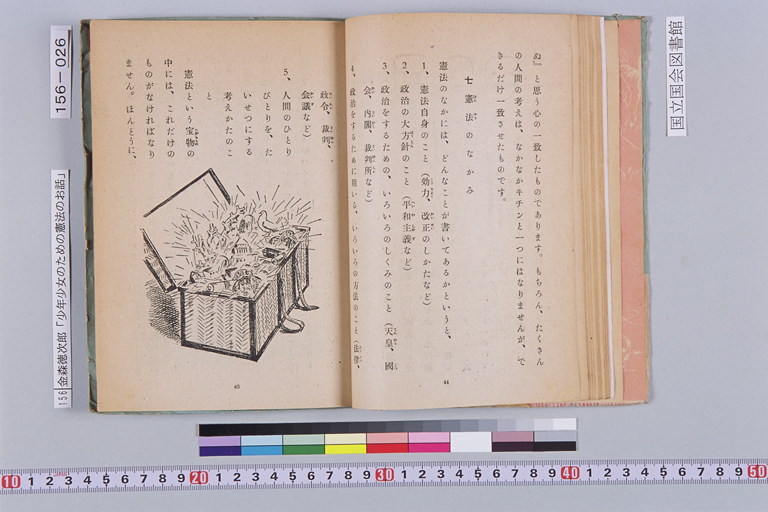 国立国会図書館
156－026
156 金森徳次郎「少年少女のための憲法のお話」
ぬ』と思う心の一致したものであります。もちろん、たくさん
の人間の考えは、なかなかキチンと一つにはなりませんが、で
きるだけ一致させたものです。
七　憲法のなかみ
憲法のなかには、どんなことが書いてあるかというと、
1、憲法自身のこと（効力、改正のしかたなど）
2、政治の大方針のこと（平和主義など）
3、政治をするための、いろいろのしくみのこと（天皇、國
会、内閣、裁判所など）
4、政治をするために用いる、いろいろの方法のこと（法律、
44
政令、裁判、
会議など）
5、人間のひとり
びとりを、た
いせつにする
考えかたのこ
と
憲法という宝物の
中には、これだけの
ものがなければなり
ません。ほんとうに、
45
10 1 2 3 4 5 6 7 8 9 20 1 2 3 4 5 6 7 8 9 30 1 2 3 4 5 6 7 8 9 40 1 2 3 4 5 6 7 8 9 50